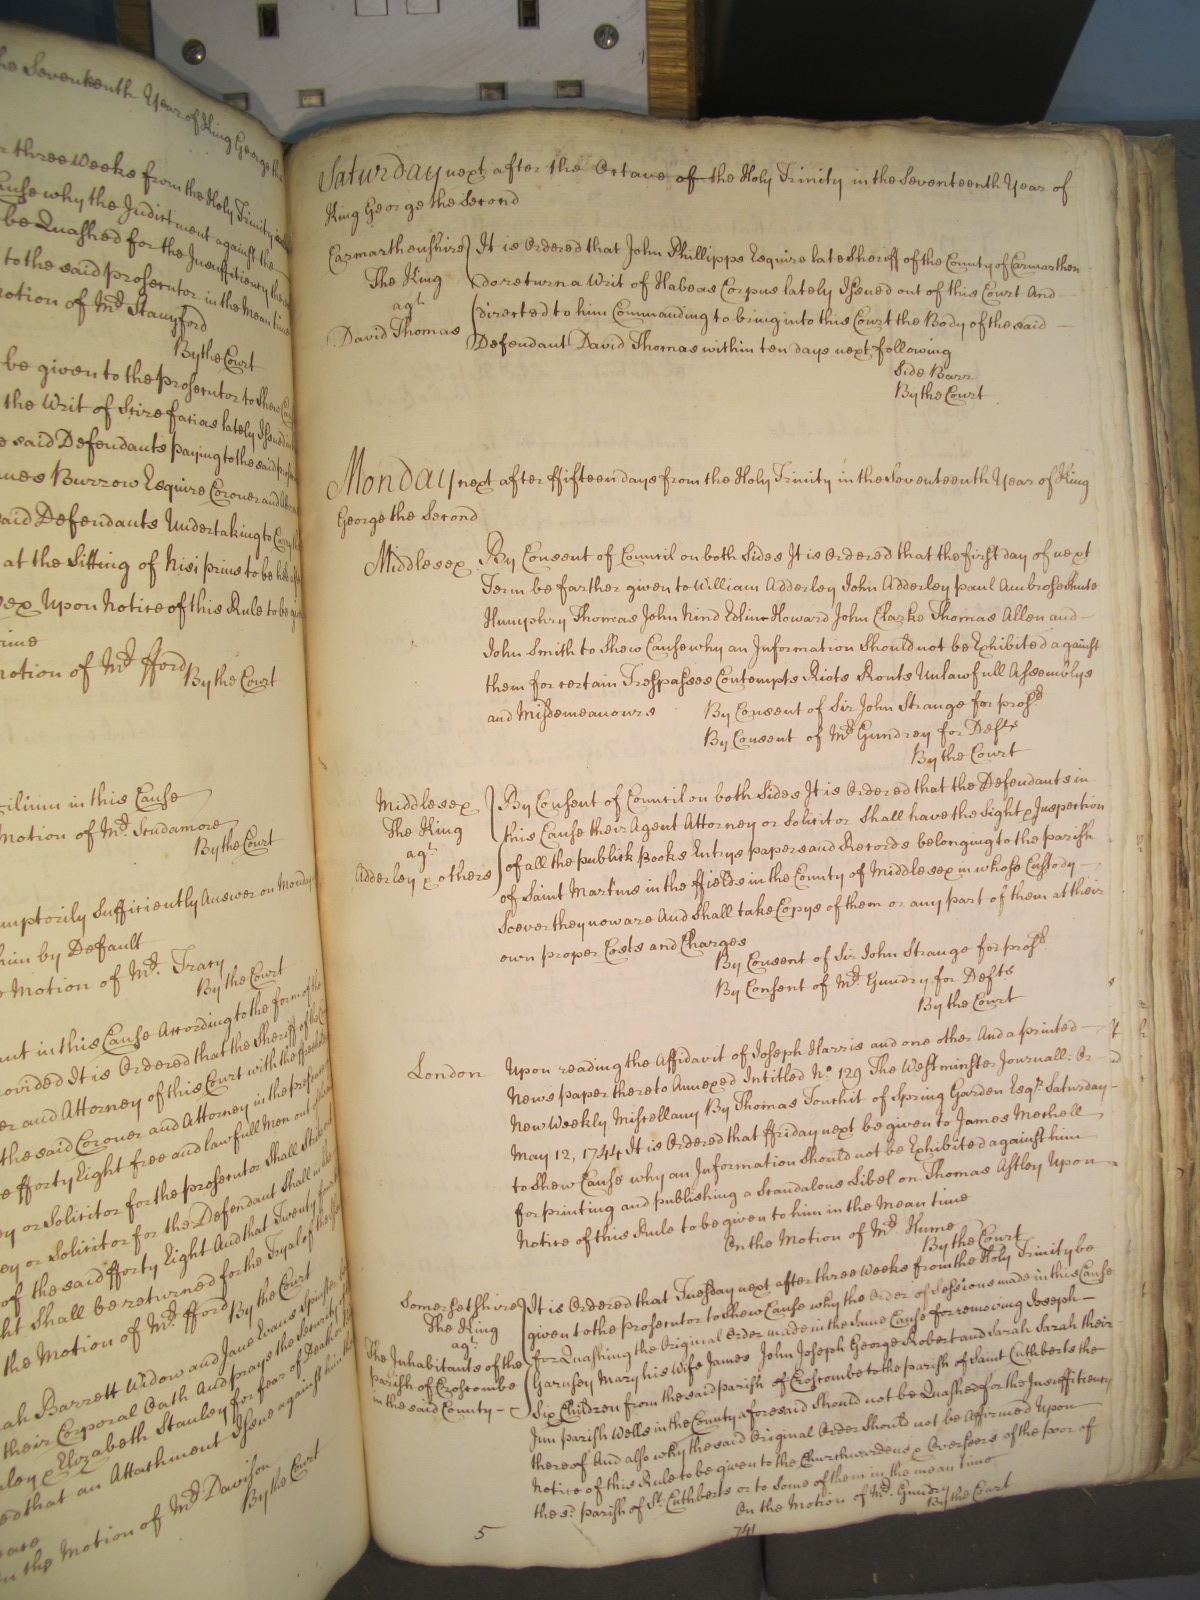 the Seventeenth Year of King George the
three Weeks from the Holy Trinity
Cause why the Indictment against the
be Quashed for the Insufficiency thereof
to the said prosecutor in the Mean time
Motion of Mr. Stamford
By the Court
be given to the prosecutor to Shew Cause
the Writ of Scire facias lately Issued
said Defendants paying to the said
James Burrow Esquire Coroner and
said Defendants Undertaking to Carry
at the Sitting of Nisi prius to be held
Upon Notice of this Rule to be
time
Motion of Mr. fford
By the Court
in this Cause
Motion of Mr. Scudamore
By the Court
Sufficiently Answer on Monday
him by Default
Motion of Mr. Tracy
By the Court
in this Cause According to the form of the
provided It is Ordered that the Sheriff of
and Attorney of this Court with the
the said Coroner and Attorney in the
fforty Eight free and lawfull Men out of
or Solicitor for the prosecutor Shall Strike
or Solicitor for the Defendant Shall in
of the said fforty Eight And that Twenty
Shall be returned for the Tryal of
the Motion of Mr. fford
By the Court
Barrett Widow and Jane Evans Spinster
their Corporal Oath And prays the Security
Elizabeth Stanley for fear of Death
that an Attachment Issue against him
On the Motion of Mr. Davison
By the Court
Saturday next after the Octave of the Holy Trinity in the Seventeenth Year of
King George the Second
Carmarthenshire It is Ordered that John Phillipps Esquire late Sheriff of the County of Carmarthen
The King do return a Writ of Habeas Corpus lately Issued out of this Court And
agt. directed to him Commanding to bring into this Court the Body of the said
David Thomas Defendant David Thomas within ten days next following
Side Barr
By the Court
Monday next after ffifteen days from the Holy Trinity in the Seventeenth Year of King
George the Second
Middlesex By Consent of Council on both Sides It is Ordered that the first day of next
Term be farther given to William Adderley John Adderley paul Ambrose Shute
Humphry Thomas John Nind Edlin Howard John Clarke Thomas Allen and
John Smith to Shew Cause why an Information Should not be Exhibited against
them for certain Trespasses Contempts Riots Routs Unlawfull Assemblys
and Misdemeanours By Consent of Sir John Strange for prosr.
By Consent of Mr. Gundrey for Defts.
By the Court
Middlesex By Consent of Council on both Sides It is Ordered that the Defendants in
The King this Cause their Agent Attorney or Solicitor Shall have the Sight & Inspection
agt. of all the publick Books Entrys papers and Records belonging to the parish
Adderley & others of Saint Martins in the ffields in the County of Middlesex in whose Custody
soever they now are And Shall take Copys of them or any part of them at their
own proper Costs and Charges
By Consent of Sir John Strange for prosr.
By Consent of Mr. Gundry for Defts.
By the Court
London Upon reading the Affidavit of Joseph Harris and one other And a printed
News paper thereto Annexed Intitled No. 129 The Westminster Journall: Or
New Weekly Miscellany By Thomas Touchit of Spring Garden Esqr. Saturday
May 12, 1744 It is Ordered that ffriday next be given to James Mechell
to Shew Cause why an Information Should not be Exhibited against him
for printing and publishing a Scandalous Libel on Thomas Astley Upon
Notice of this Rule to be given to him in the Mean time
On the Motion of Mr. Hume
By the Court
Somersetshire It is Ordered that Tuesday next after three Weeks from the Holy Trinity be
The King given to the prosecutor to Shew Cause why the Order of Sessions made in this Cause
agt. for Quashing the Original Order made in the Same Cause for removing Joseph
The Inhabitants of the Garnsey Mary his Wife James John Joseph George Robert and Sarah Sarah their
parish of Croscombe Six Children from the said parish of Croscombe to the parish of Saint Cuthberts the
in the said County Inn parish Wells in the County aforesaid Should not be Quashed for the Insufficiency
thereof And also why the said Original Order Should not be Affirmed Upon
Notice of this Rule to be given to the Churchwardens & Overseers of the poor of
the sd. parish of St. Cuthberts or to some of them in the mean time
On the Motion of Mr. Gundry
By the Court
5
741